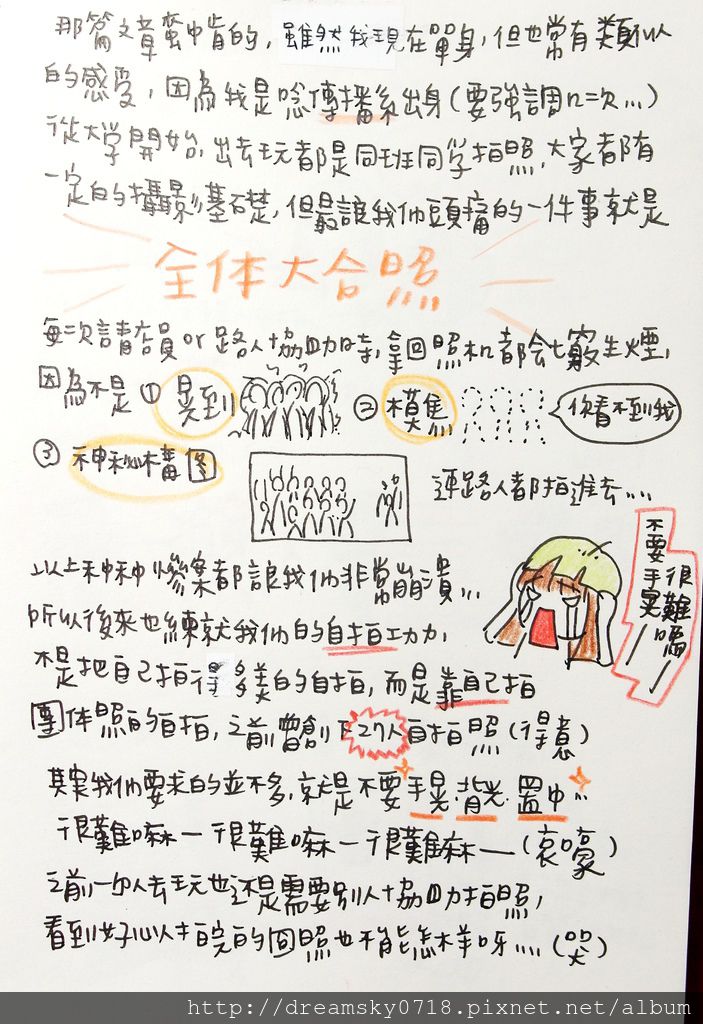 那篇文章蠻中肯的，雖然我現在單身，但也常有類似
的感受，因為我是唸傳播系出身(要強調n次...)
從大學開始，出去玩都是同班同学拍照，大家都有
一定的攝影基礎，但最讓我们頭痛的一件事就是
全体大合照
每次請店員or路人協助時，拿回照相机都会七竅生煙，
因為不是①晃到 ②模焦 你看不到我
③神秘構图 連路人都拍進去....
不要手晃
很難嗎
以上种种慘案都讓我们非常崩潰...
所以後來也練就我們的自拍功力，
不是把自己拍得多美的自拍，而是靠自己拍
團体照的自拍，之前曾創下27人自拍照(得意)
其实我們要求的並不多，就是不要手晃.背光.置中..
很難嘛—很難嘛—很難嘛—(哀嚎)
之前一个人去玩也还是需要別人協助拍照，
看到好心人拍完的回照也不能怎樣呀....(哭)
http://dreamsky0718.pixnet.net/album